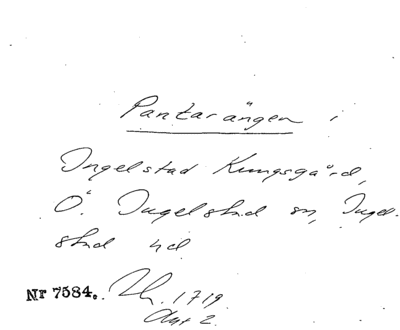 Pantarängen i
Ingelstad Kungsgård,
Ö. Ingelstad sn, Ingel-
stad hd
Nr 7584. Lh. 1719
Akt 2